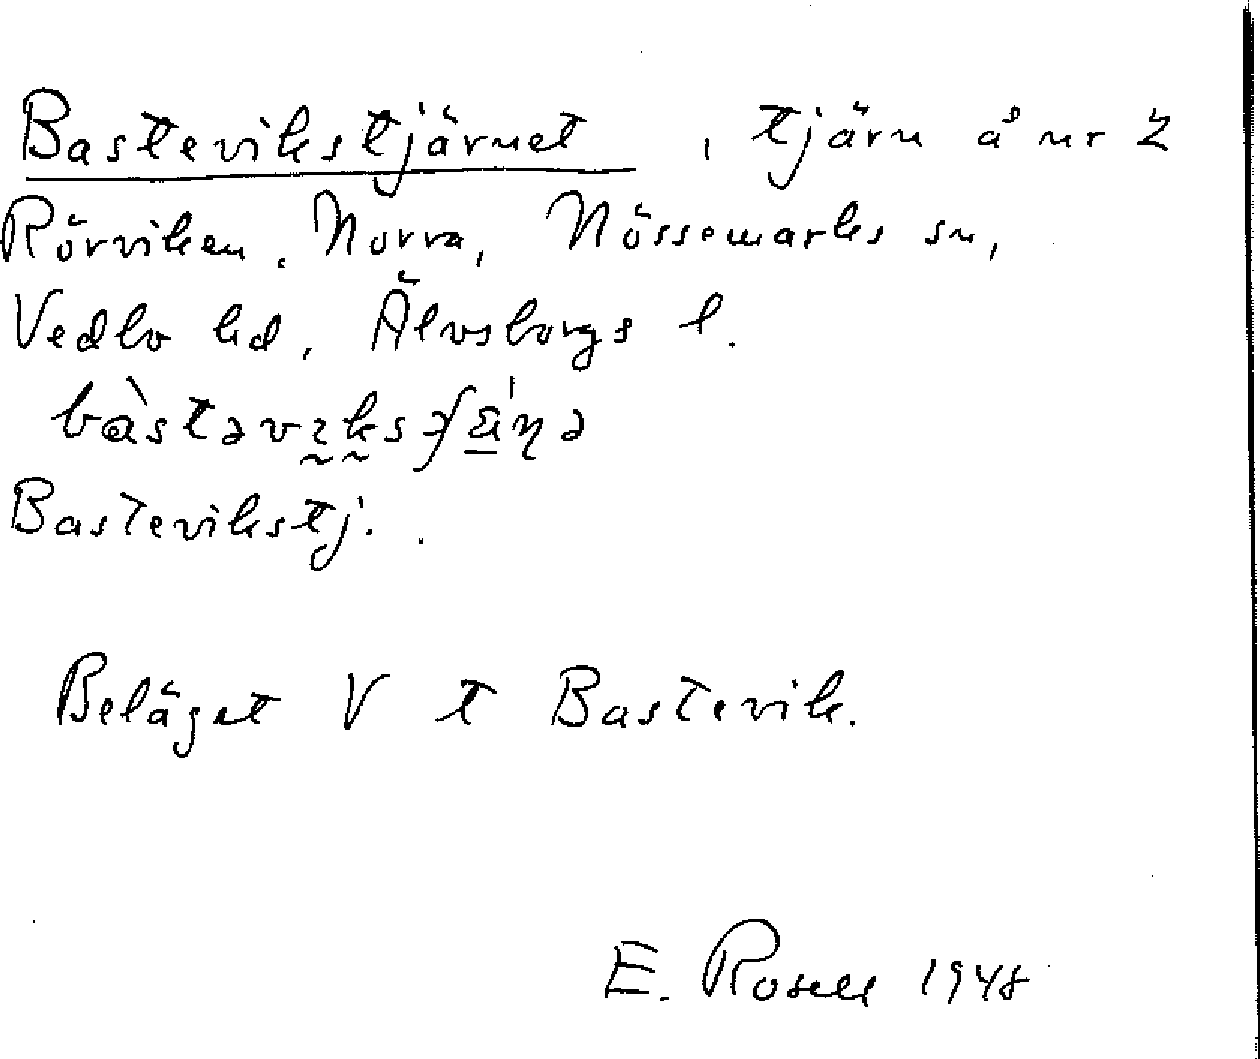 Bastevikstjärnet, tjärn å nr 2
Rörviken, Norra, Nössemarks sn,
Vedbo hd, Älvsborgs l.
Bastevikstj.
Beläget V t Bastevik.
E. Rosell 1948